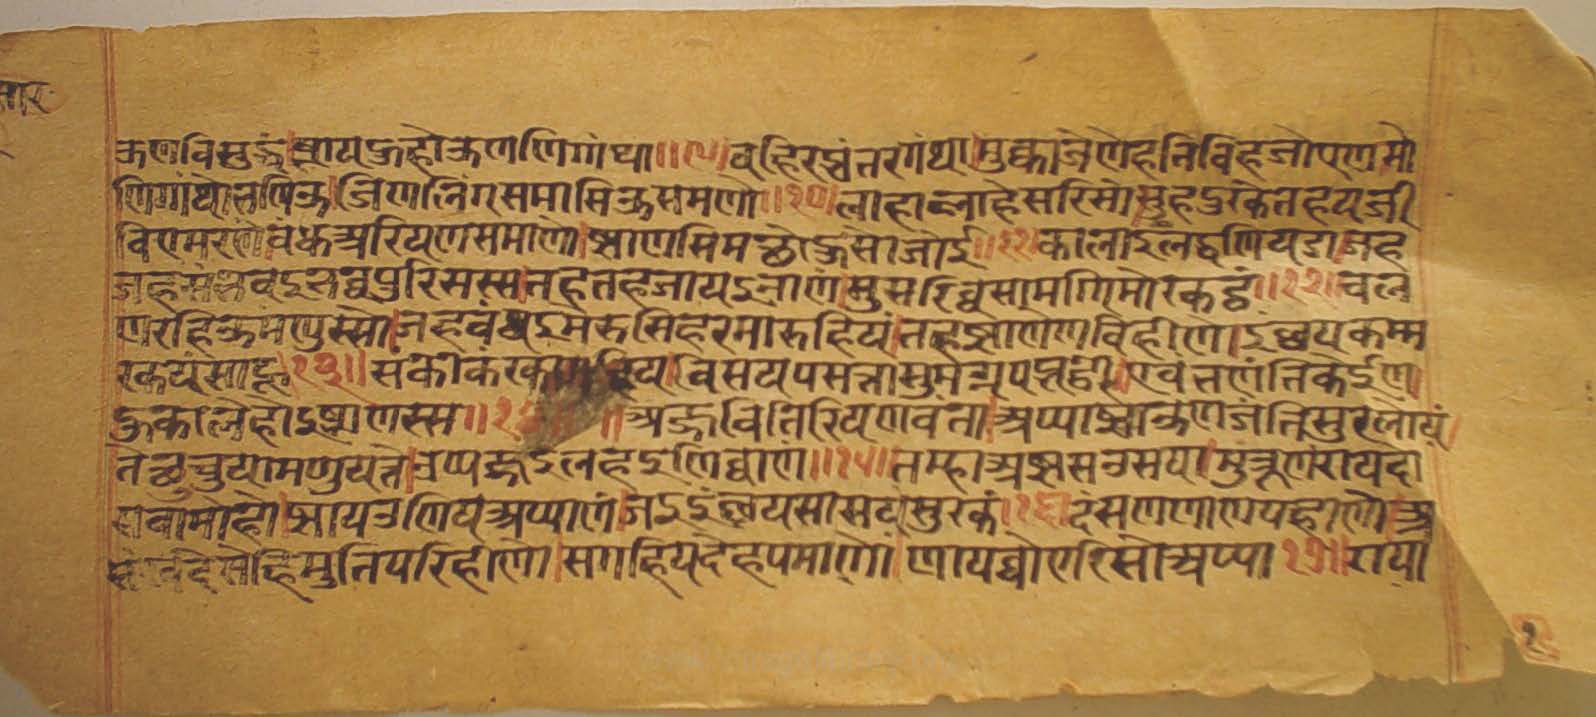 ऊणविसुद्धं।झायहु होऊण णिगंथा॥९।बहिरब्भंतरगंथा।मुक्का जेणेह तिविहजोएण।सो
णिगंथो भणिऊ।जिणलिंगसमासिऊ समणो॥१०।लाहालाहे सरिसो।सुहदुरके तह य जी
विए मरणे।बंधव अरियण समाणो।झाण समत्थो हु सो जोई॥११।कालाइलद्धि णियडा।जह
जह संभवइ भव्वपुरिसस्स।तह तह जायइ सामग्गि मोरकट्ठं॥१२।चल
णरहिऊ मणुस्सो।जह वंछइ मेरुसिहरमारुहियं।तह झाणेण विहीणो।इंछय कम्म
रकयं साहू।१३॥संकाकंखा विसयपसत्ता सुमग्गपब्भट्ठा।एवं भणंति केई ण
हु कालो होइ झाणस्स॥ अज्ज वि तिरियणवंता।अप्पा झाऊण जंति सुरलोयं।
तत्थ चुया मणुयत्ते।उप्पज्जइ लहइ णिव्वाणं॥१५॥तम्हा अब्भसउ सया।मुत्तूणं रायदो
सवामोहो।झायउ णिय अप्पाणं।जइ इंछय सासयं सुरकं।१६।दंसणणाणपहाणो।अ
मुत्तिपरिहीणो।सगहियदेहपमाणो।णायव्वो एरिसो अप्पा १७॥राया